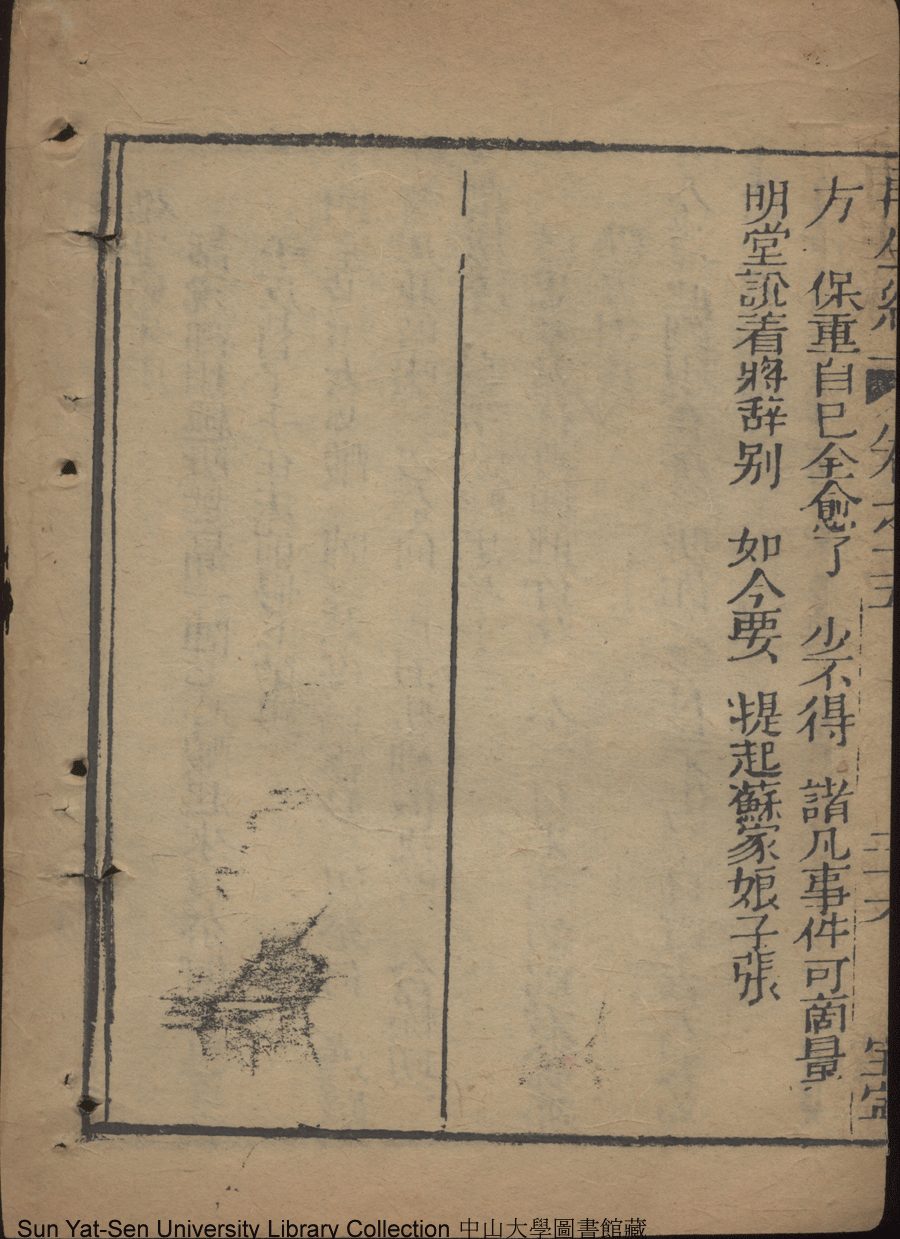 再生緣 卷之十五 二十六
方 保重自已全愈了 少不得 諸凡事件可啇量
明堂說着將辞别 如今要 提起蘇家娘子張
Sun Yat-Sen University Library Collection 中山大學圖書館藏